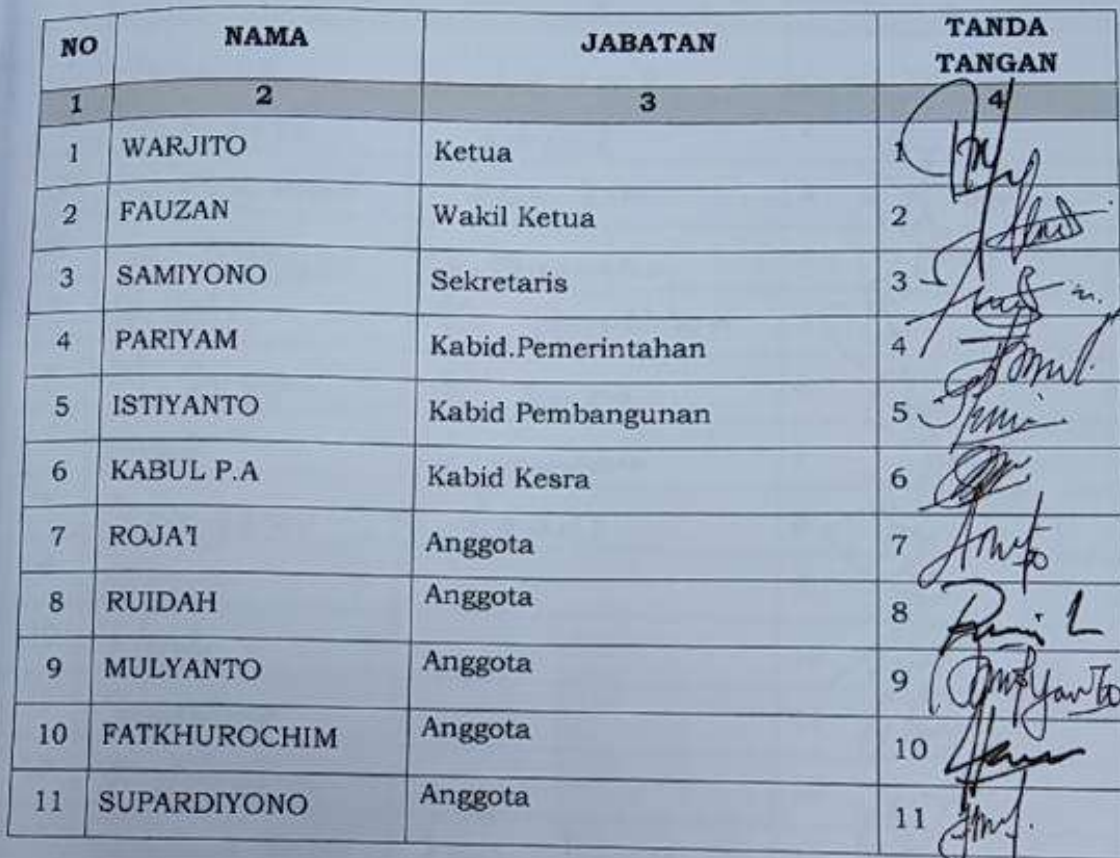 NO NAMA JABATAN TANDA TANGAN
1 2 3 4
1 WARJITO Ketua 1
2 FAUZAN Wakil Ketua 2
3 SAMIYONO Sekretaris 3
4 PARIYAM Kabid.Pemerintahan 4
5 ISTIYANTO Kabid Pembangunan 5
6 KABUL P.A Kabid Kesra 6
7 ROJA'I Anggota 7
8 RUIDAH Anggota 8
9 MULYANTO Anggota 9
10 FATKHUROCHIM Anggota 10
11 SUPARDIYONO Anggota 11